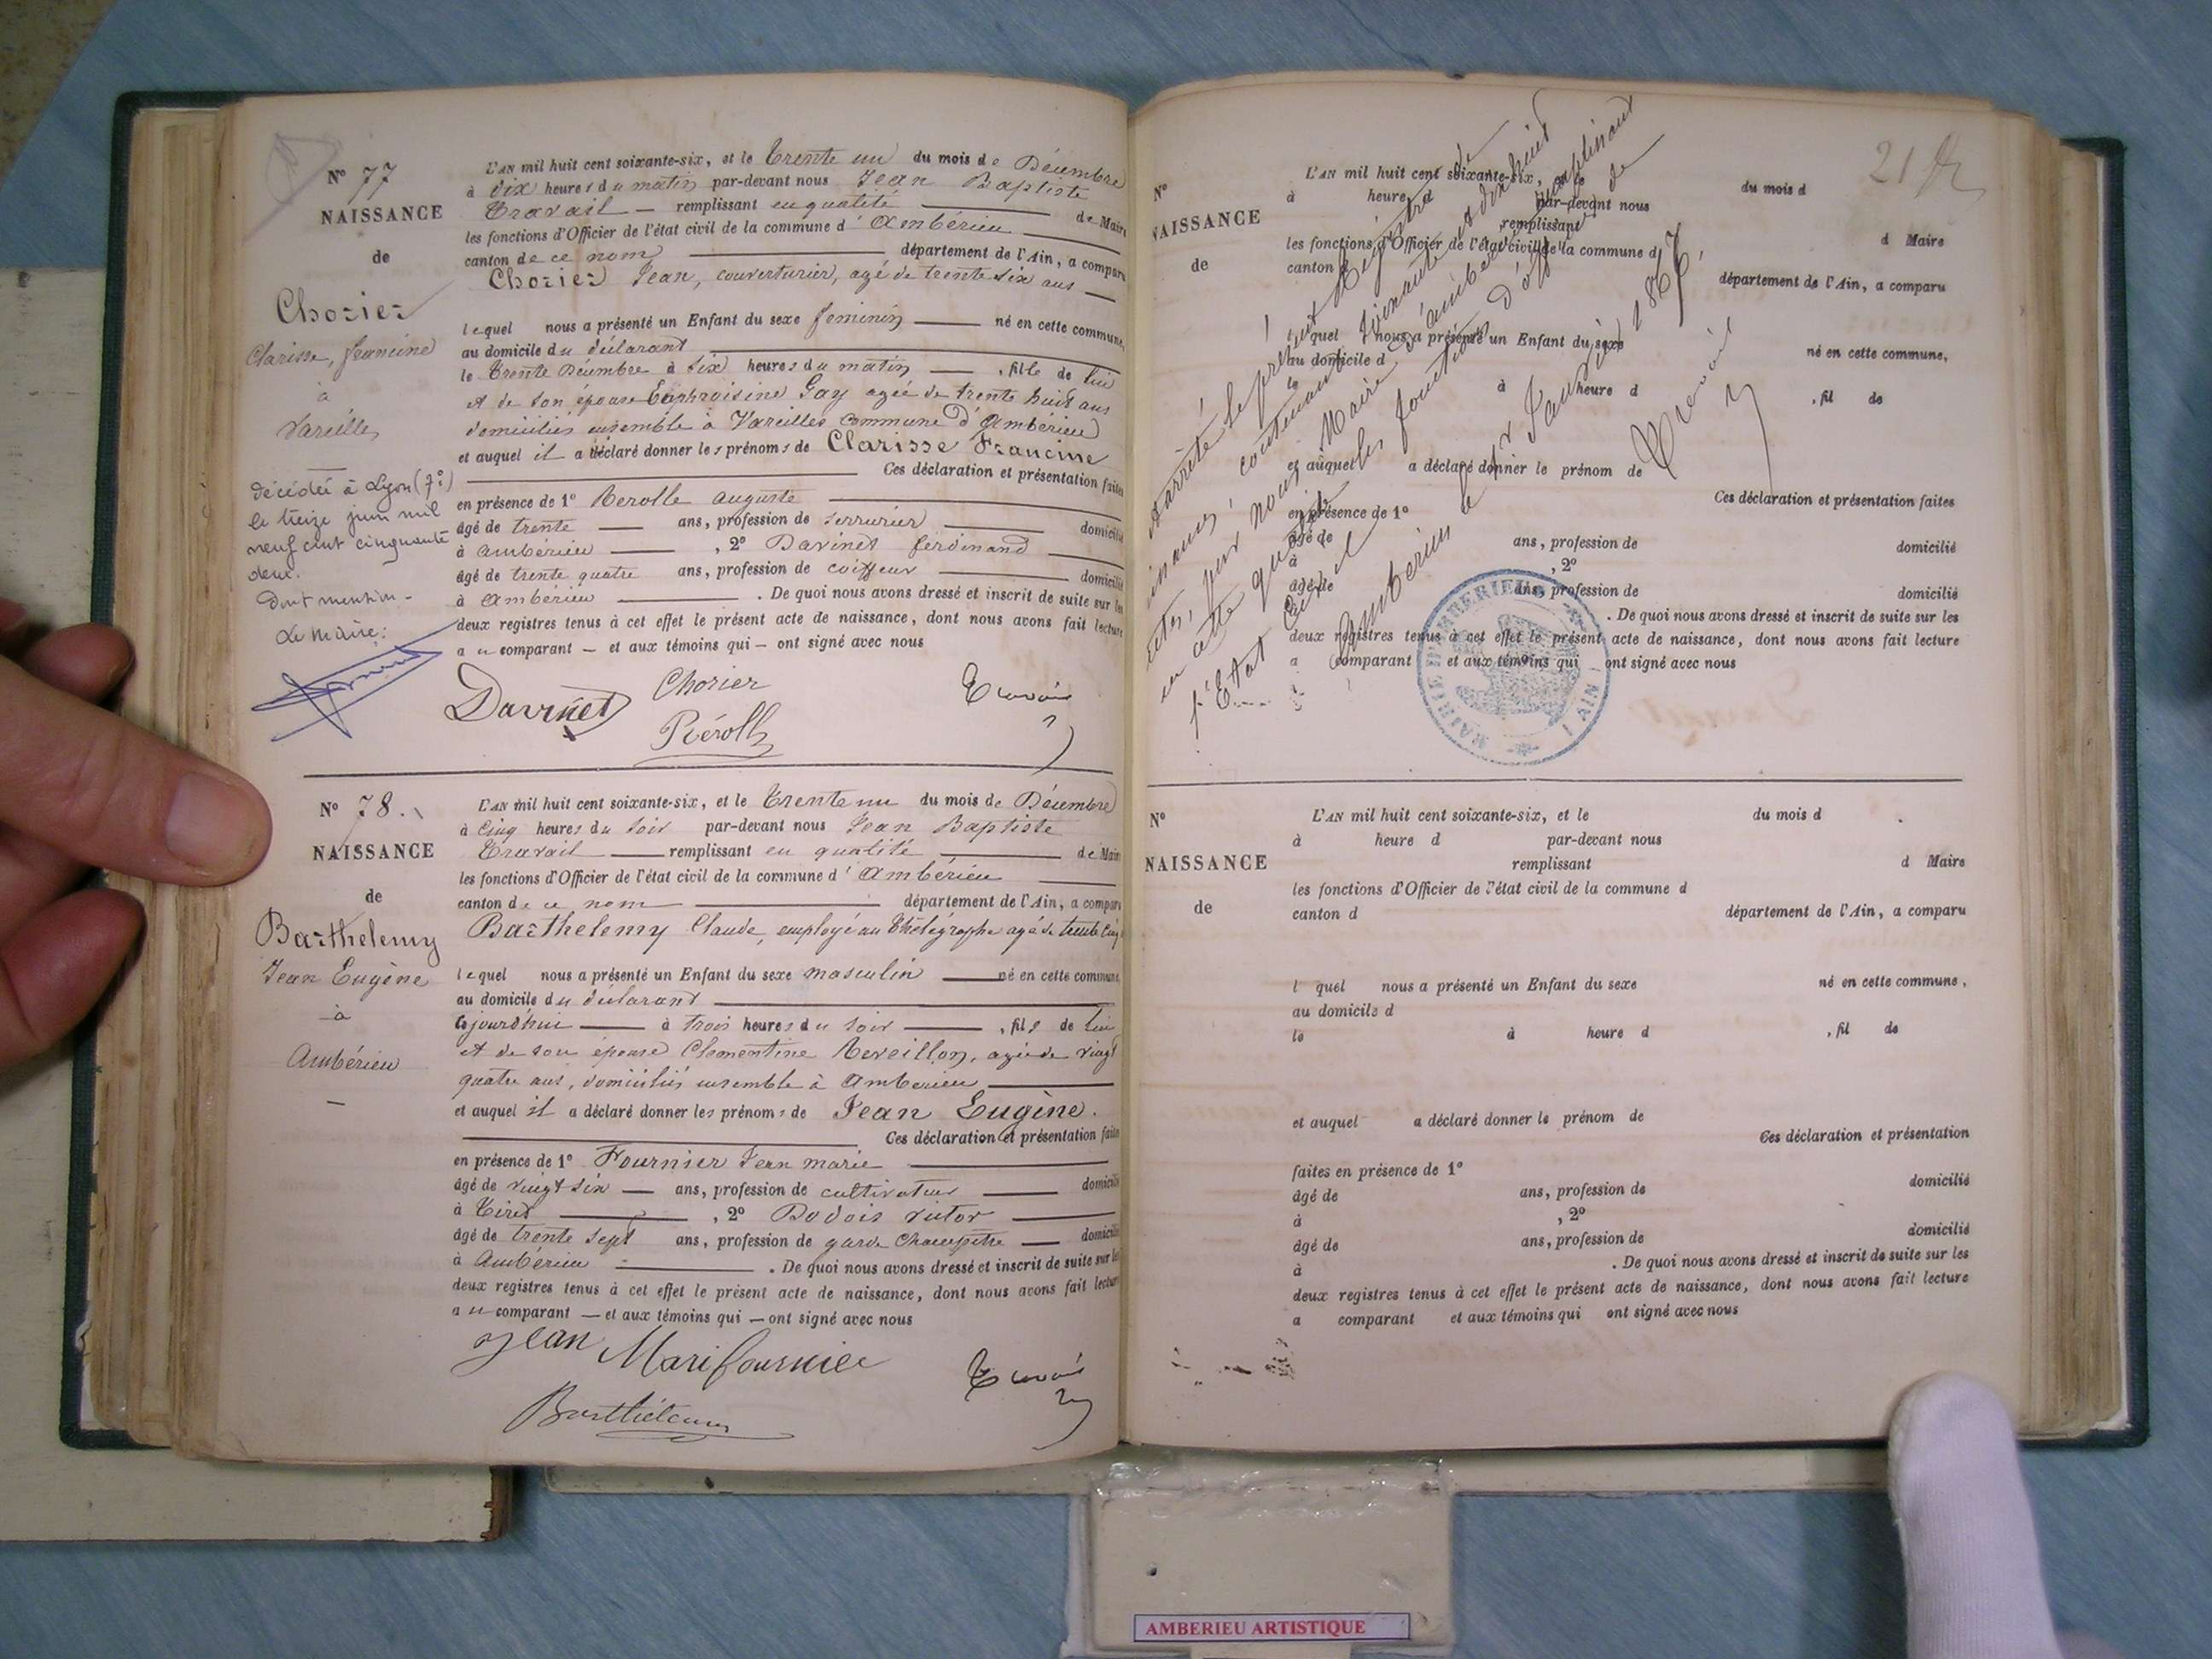 N° 77
NAISSANCE
de
Chorier
Clarisse, Francine
à
Vareilles
décédée à Lyon (7e)
le treize juin mil
neuf cent cinquante
deux.
Dont mention -
Le Maire:
L'AN mil huit cent soixante-six, et le trente un du mois de Décembre
à dix heures du matin par-devant nous Jean Baptiste
Travail — remplissant en qualité — de Maire
les fonctions d'Officier de l'état civil de la commune d'Ambérieu
canton de ce nom — département de l'Ain, a comparu
Chorier Jean, couverturier, agé de trente six ans —
lequel nous a présenté un Enfant du sexe feminin — né en cette commune,
au domicile du déclarant —
le trente Décembre à six heures du matin —, fille de lui
et de son épouse Euphroisine Gay agée de trente huit ans
domiciliés ensemble à Vareilles commune d'Ambérieu
et auquel il a déclaré donner les prénoms de Clarisse Francine
— Ces déclaration et présentation faites
en présence de 1° Rerolle auguste —
âgé de trente — ans, profession de serrurier — domicilié
à ambérieu —, 2° Davinet ferdinand —
âgé de trente quatre ans, profession de coiffeur — domicilié
à Ambérieu —. De quoi nous avons dressé et inscrit de suite sur les
deux registres tenus à cet effet le présent acte de naissance, dont nous avons fait lecture
au comparant — et aux témoins qui — ont signé avec nous
Davinet Chorier Travail
Rérolle
N° 78.
NAISSANCE
de
Barthelemy
Jean Eugène
à
Ambérieu
—
L'AN mil huit cent soixante-six, et le trente un du mois de Décembre
à cinq heures du soir par-devant nous Jean Baptiste
Travail — remplissant en qualité — de Maire
les fonctions d'Officier de l'état civil de la commune d'Ambérieu —
canton de ce nom — département de l'Ain, a comparu
Barthelemy Claude, employé au thélégraphe agé de trente cinq
lequel nous a présenté un Enfant du sexe masculin — né en cette commune,
au domicile du déclarant —
cejourd'hui — à trois heures du soir —, fils de lui
et de son épouse Clementine Reveillon, agée de vingt
quatre ans, domiciliés ensemble à Ambérieu —
et auquel il a déclaré donner les prénoms de Jean Eugène.
— Ces déclaration et présentation faites
en présence de 1° Fournier Jean marie —
âgé de vingt six — ans, profession de cultivateur — domicilié
à Tiret —, 2° Bodois victor —
âgé de trente sept ans, profession de garde champêtre — domicilié
à Ambérieu —. De quoi nous avons dressé et inscrit de suite sur les
deux registres tenus à cet effet le présent acte de naissance, dont nous avons fait lecture
au comparant — et aux témoins qui — ont signé avec nous
Jean Mari fournier Travail
Barthélemy
21
N°
NAISSANCE
de
L'AN mil huit cent soixante-six, et le du mois d
à heure d par-devant nous
remplissant d Maire
les fonctions d'Officier de l'état civil de la commune d
canton d département de l'Ain, a comparu
l quel nous a présenté un Enfant du sexe né en cette commune,
au domicile d
le à heure d , fil de
et auquel a déclaré donner le prénom de
Ces déclaration et présentation faites
en présence de 1°
âgé de ans, profession de domicilié
à , 2°
âgé de ans, profession de domicilié
à . De quoi nous avons dressé et inscrit de suite sur les
deux registres tenus à cet effet le présent acte de naissance, dont nous avons fait lecture
a comparant et aux témoins qui ont signé avec nous
Arrêté le présent Régistre de
contenant soixante et dix huit
par nous Maire d'ambérieu remplissant
en cette qualité les fonctions d'off de
l'Etat Civil
Ambérieu le Janvier 1867.
Travail
MAIRIE D'AMBERIEU
AIN
N°
NAISSANCE
de
L'AN mil huit cent soixante-six, et le du mois d
à heure d par-devant nous
remplissant d Maire
les fonctions d'Officier de l'état civil de la commune d
canton d département de l'Ain, a comparu
l quel nous a présenté un Enfant du sexe né en cette commune,
au domicile d
le à heure d , fil de
et auquel a déclaré donner le prénom de
Ces déclaration et présentation
faites en présence de 1°
âgé de ans, profession de domicilié
à , 2°
âgé de ans, profession de domicilié
à . De quoi nous avons dressé et inscrit de suite sur les
deux registres tenus à cet effet le présent acte de naissance, dont nous avons fait lecture
a comparant et aux témoins qui ont signé avec nous
AMBERIEU ARTISTIQUE